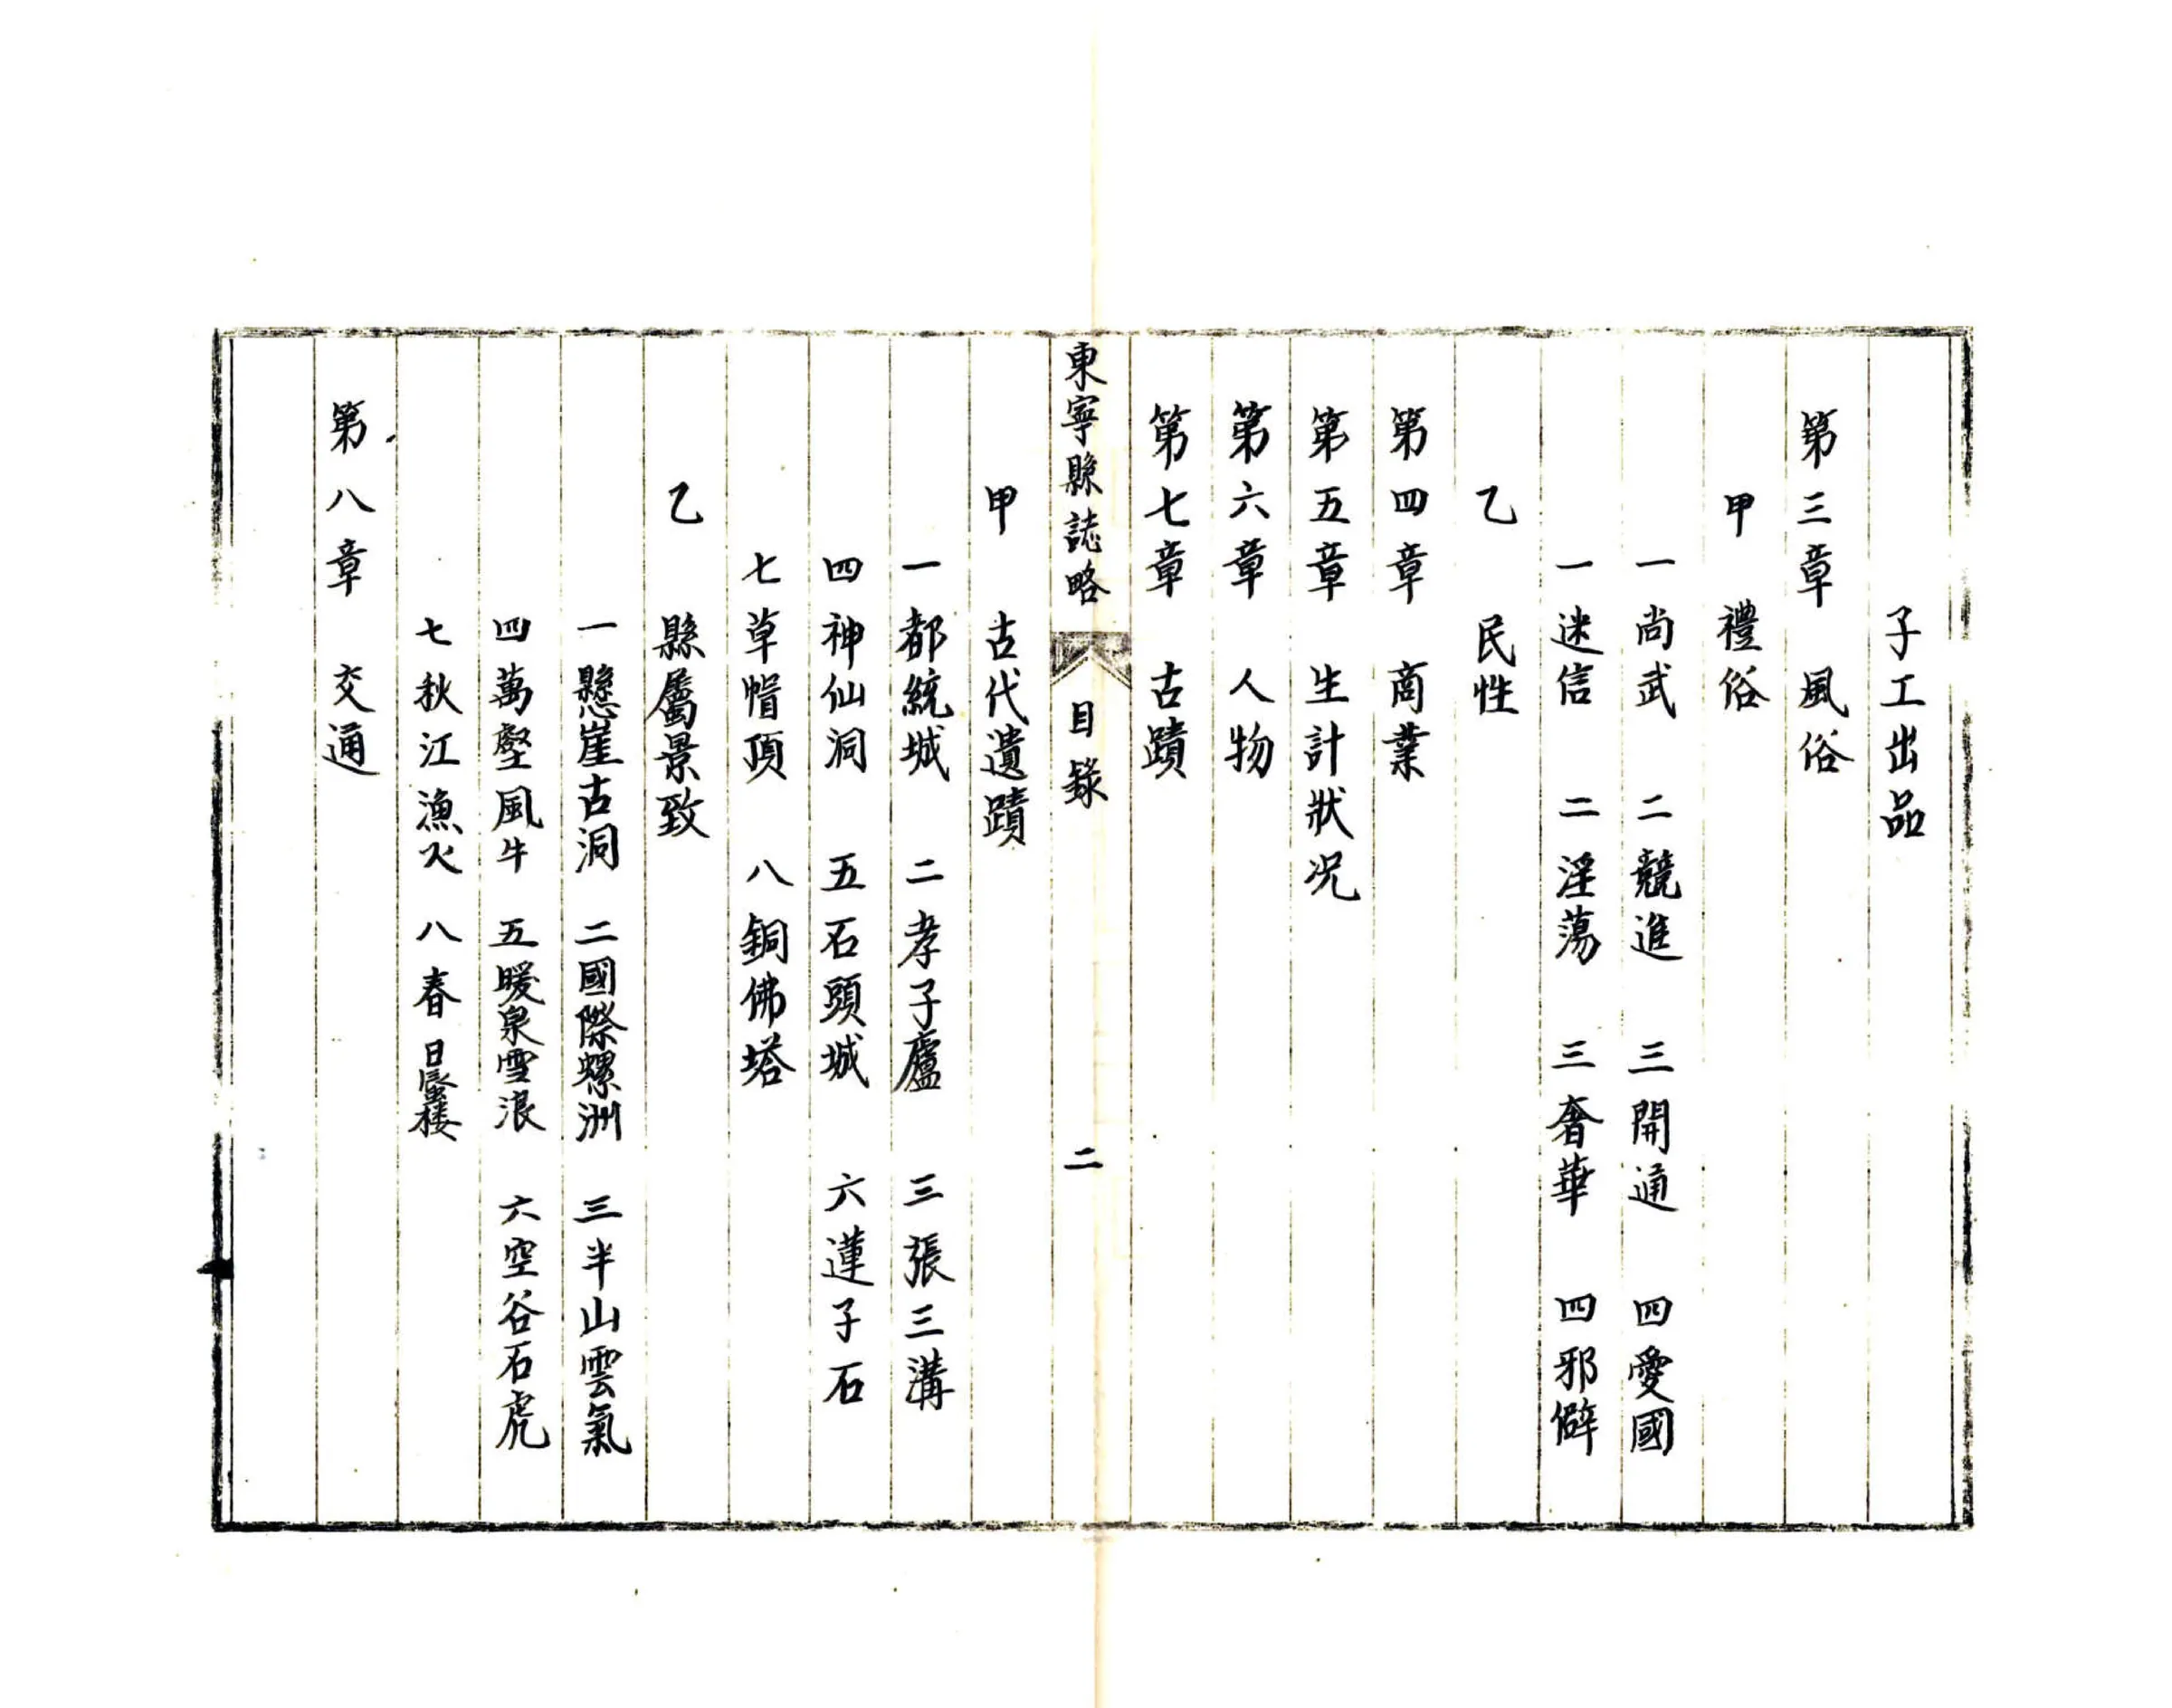 子工出品
第三章　風俗
甲　禮俗
一尚武　二競進　三開通　四愛國
一迷信　二淫蕩　三奢華　四邪僻
乙　民性
第四章　商業
第五章　生計狀况
第六章　人物
第七章　古蹟
東寧縣誌略　目錄　二
甲　古代遺蹟
一都統城　二孝子廬　三張三溝
四神仙洞　五石頭城　六蓮子石
七草帽頂　八銅佛塔
乙　縣屬景致
一懸崖古洞　二國際螺洲　三半山雲氣
四萬壑風牛　五暖泉雪浪　六空谷石虎
七秋江漁火　八春日蜃楼
第八章　交通